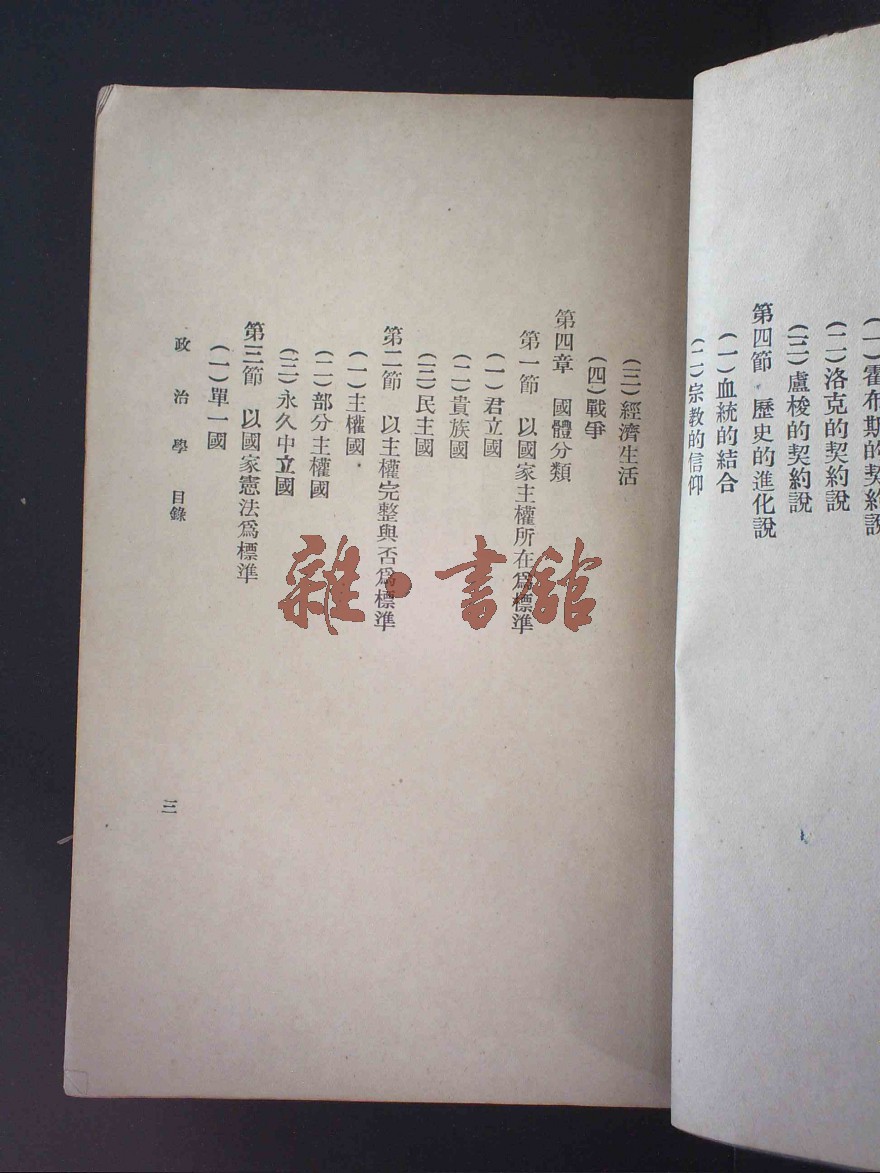 (一)霍布斯的契約說
(二)洛克的契約說
(三)盧梭的契約說
第四節 歷史的進化說
(一)血統的結合
(二)宗教的信仰
(三)經濟生活
(四)戰爭
第四章 國體分類
第一節 以國家主權所在爲標準
(一)君立國
(二)貴族國
(三)民主國
第二節 以主權完整與否爲標準
(一)主權國
(二)部分主權國
(三)永久中立國
第三節 以國家憲法爲標準
(一)單一國
政治學 目錄
三
雜·書館